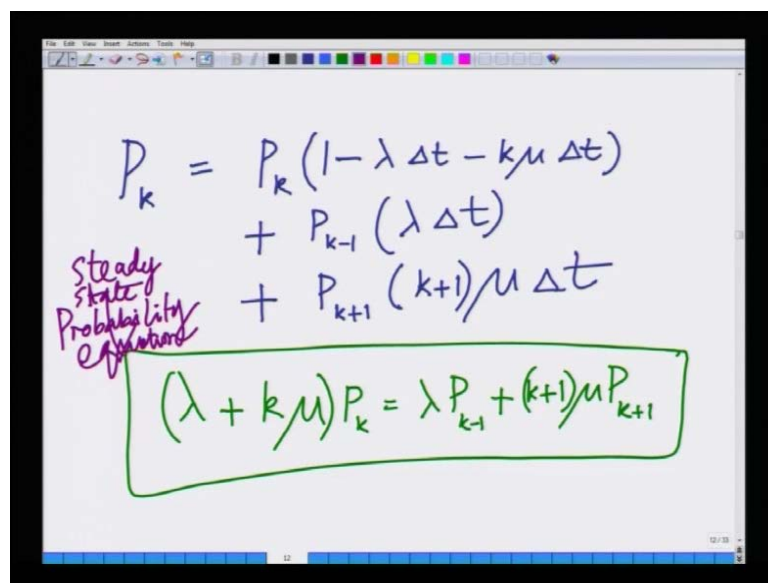 File Edit View Insert Actions Tools Help
P_k = P_k (1 - λ Δt - kμ Δt)
+ P_{k-1} (λ Δt)
+ P_{k+1} (k+1) μ Δt
steady
state
Probability
equations
(λ + kμ) P_k = λ P_{k-1} + (k+1) μ P_{k+1}
12